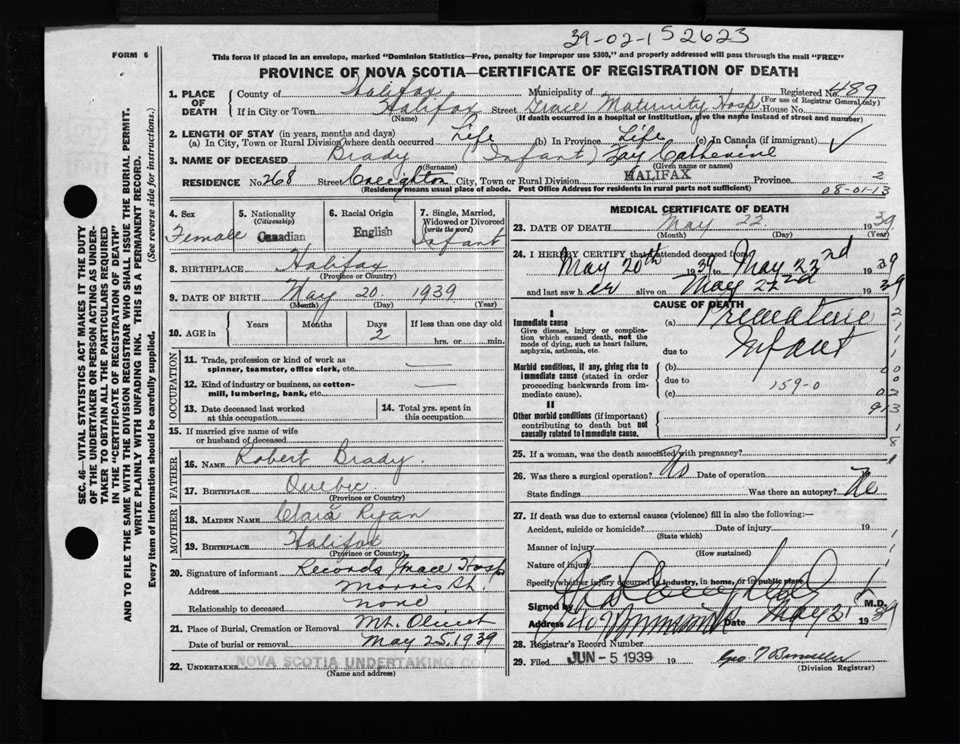 39-02-1 52623
FORM 6
This form if placed in an envelope, marked "Dominion Statistics—Free, penalty for improper use $300," and properly addressed will pass through the mail "FREE"
PROVINCE OF NOVA SCOTIA—CERTIFICATE OF REGISTRATION OF DEATH
1. PLACE OF DEATH
County of Halifax Municipality of Registered No. 489
(For use of Registrar General only)
If in City or Town Halifax Street Grace Maternity Hosp House No.
(Name) (If death occurred in a hospital or institution, give the name instead of street and number)
2. LENGTH OF STAY (in years, months and days)
(a) In City, Town or Rural Division where death occurred Life (b) In Province Life (c) In Canada (if immigrant)
3. NAME OF DECEASED Brady (Infant) Fay Catherine
(Surname) (Given name or names)
RESIDENCE No. 268 Street Creighton City, Town or Rural Division HALIFAX Province 2
(Residence means usual place of abode. Post Office Address for residents in rural parts not sufficient) 08-01-13
4. Sex Female
5. Nationality (Citizenship) Canadian
6. Racial Origin English
7. Single, Married, Widowed or Divorced (write the word) Infant
8. BIRTHPLACE Halifax
(Province or Country)
9. DATE OF BIRTH May 20 1939
(Month) (Day) (Year)
10. AGE in Years Months Days 2 If less than one day old hrs. or min.
OCCUPATION
11. Trade, profession or kind of work as spinner, teamster, office clerk, etc. —
12. Kind of industry or business, as cotton-mill, lumbering, bank, etc. —
13. Date deceased last worked at this occupation
14. Total yrs. spent in this occupation
15. If married give name of wife or husband of deceased
FATHER
16. NAME Robert Brady.
17. BIRTHPLACE Quebec.
(Province or Country)
MOTHER
18. MAIDEN NAME Clara Ryan
19. BIRTHPLACE Halifax
(Province or Country)
20. Signature of informant Records Grace Hosp
Address Morris St.
Relationship to deceased none
21. Place of Burial, Cremation or Removal Mt. Olivet
Date of burial or removal May 25, 1939
22. UNDERTAKER NOVA SCOTIA UNDERTAKING CO
(Name and address)
MEDICAL CERTIFICATE OF DEATH
23. DATE OF DEATH May 22 1939
(Month) (Day) (Year)
24. I HEREBY CERTIFY that I attended deceased from
May 20th 1939 to May 22nd 1939
and last saw her alive on May 22nd 1939
CAUSE OF DEATH
I
Immediate cause
Give disease, injury or complication which caused death, not the mode of dying, such as heart failure, asphyxia, asthenia, etc.
(a) Premature
due to Infant
Morbid conditions, if any, giving rise to immediate cause (stated in order proceeding backwards from immediate cause).
(b)
due to 159-0
(c)
II
Other morbid conditions (if important) contributing to death but not causally related to immediate cause.
25. If a woman, was the death associated with pregnancy?
26. Was there a surgical operation? No Date of operation
State findings Was there an autopsy? No
27. If death was due to external causes (violence) fill in also the following:—
Accident, suicide or homicide? Date of injury 19
(State which)
Manner of injury
(How sustained)
Nature of injury
Specify whether injury occurred in industry, in home, or in public place
Signed by M.D.
Address Date May 1939
28. Registrar's Record Number
29. Filed JUN - 5 1939 19
(Division Registrar)
SEC. 46—VITAL STATISTICS ACT MAKES IT THE DUTY
OF THE UNDERTAKER OR PERSON ACTING AS UNDER-
TAKER TO OBTAIN ALL THE PARTICULARS REQUIRED
IN THE "CERTIFICATE OF REGISTRATION OF DEATH"
AND TO FILE THE SAME WITH THE DIVISION REGISTRAR WHO SHALL ISSUE THE BURIAL PERMIT.
WRITE PLAINLY WITH UNFADING INK. THIS IS A PERMANENT RECORD.
Every item of information should be carefully supplied. (See reverse side for instructions.)